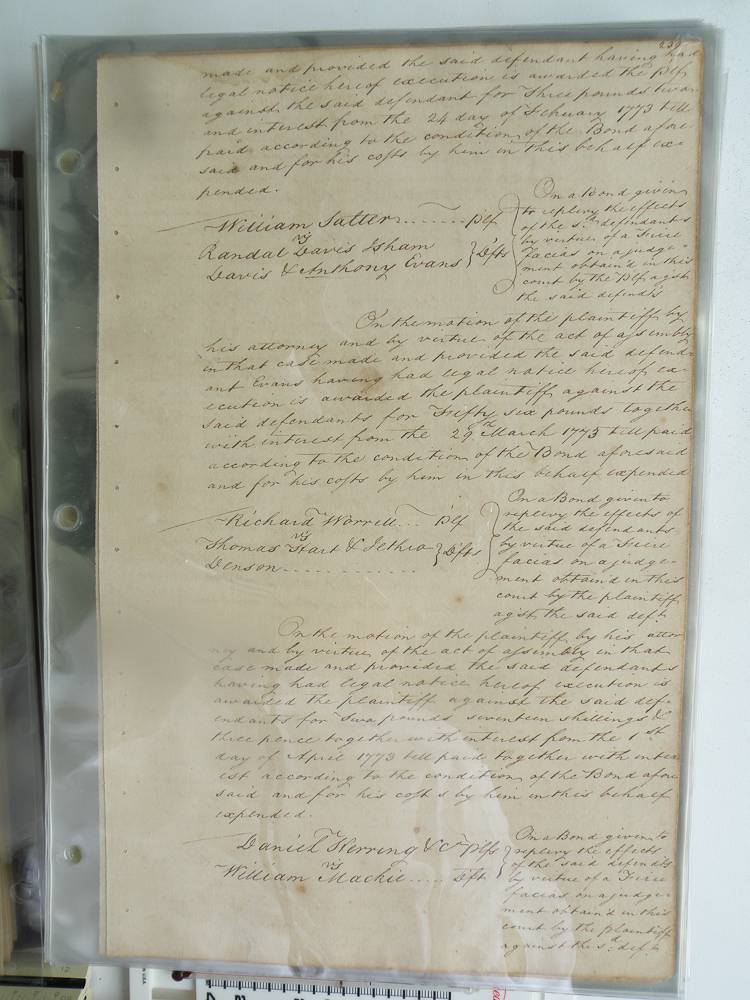 239
made and provided the said defendant having had
legal notice hereof execution is awarded the plf
against the said defendant for Three pounds two
and interest from the 24 day of February 1773 till
paid according to the condition of the Bond afore
said and for his costs by him in this behalf ex=
pended.
William Salter....... plf
vs
Randal Davis Isham
Davis & Anthony Evans } Dfts
On a Bond given
to replevy the effects
of the sd. defendants
by virtue of a Fiere
facias on a judge=
ment obtain'd in this
court by the Plf agst
the said defend.ts
On the motion of the plaintiff by
his attorney and by virtue of the act of assembly
in that case made and provided the said defend=
ant Evans having had legal notice hereof ex=
ecution is awarded the plaintiff against the
said defendants for Fifty six pounds together
with interest from the 29th March 1773 till paid
according to the condition of the Bond aforesaid
and for his costs by him in this behalf expended
Richard Worrell... plf
vs
Thomas Hart & Jethro } Dfts
Denson.............
On a Bond given to
replevy the effects of
the said defendants
by virtue of a Fiere
facias on a judge=
ment obtain'd in this
court by the plaintiff
agst the said deft.
On the motion of the plaintiff by his attor
ney and by virtue of the act of assembly in that
case made and provided the said defendants
having had legal notice hereof execution is
awarded the plaintiff against the said def=
endants for two pounds seventeen shillings &
three pence together with interest from the 1st
day of April 1773 till paid together with inter
est according to the condition of the Bond afore
said and for his costs by him in this behalf
expended.
Daniel Herring & Co plfs
vs
William Mackie..... Dft
On a Bond given to
replevy the effects
of the said defend.ts
by virtue of a Fiere
facias on a judge=
ment obtain'd in this
court by the plaintiff
against the sd. deft.